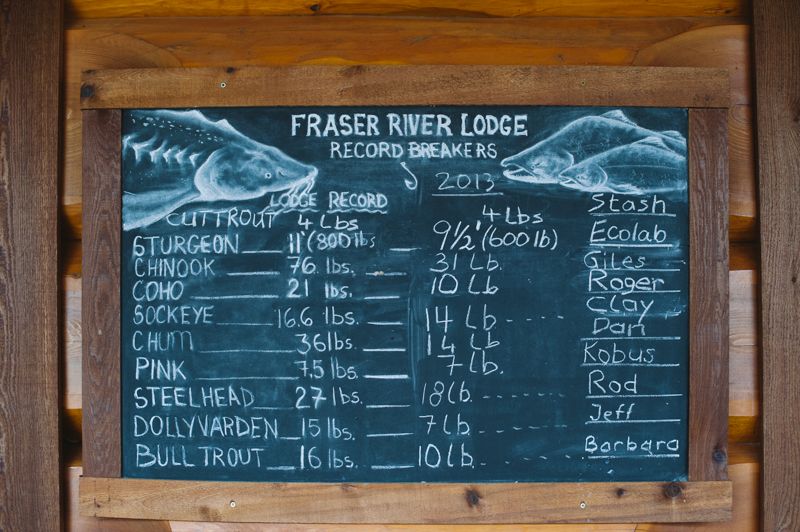 FRASER RIVER LODGE
RECORD BREAKERS
LODGE RECORD 2013
CUTTROUT 4 Lbs 4 Lbs Stash
STURGEON 11' (800 lbs 9½' (600 lb) Ecolab
CHINOOK 76 lbs. 31 Lb. Giles
COHO 21 lbs. 10 Lb Roger
SOCKEYE 16.6 lbs. 14 Lb Clay
CHUM 36 lbs. 14 Lb. Dan
PINK 7.5 lbs. 7 Lb. Kobus
STEELHEAD 27 lbs. 18 Lb. Rod
DOLLYVARDEN 15 lbs. 7 Lb. Jeff
BULL TROUT 16 lbs. 10 Lb. Barbara